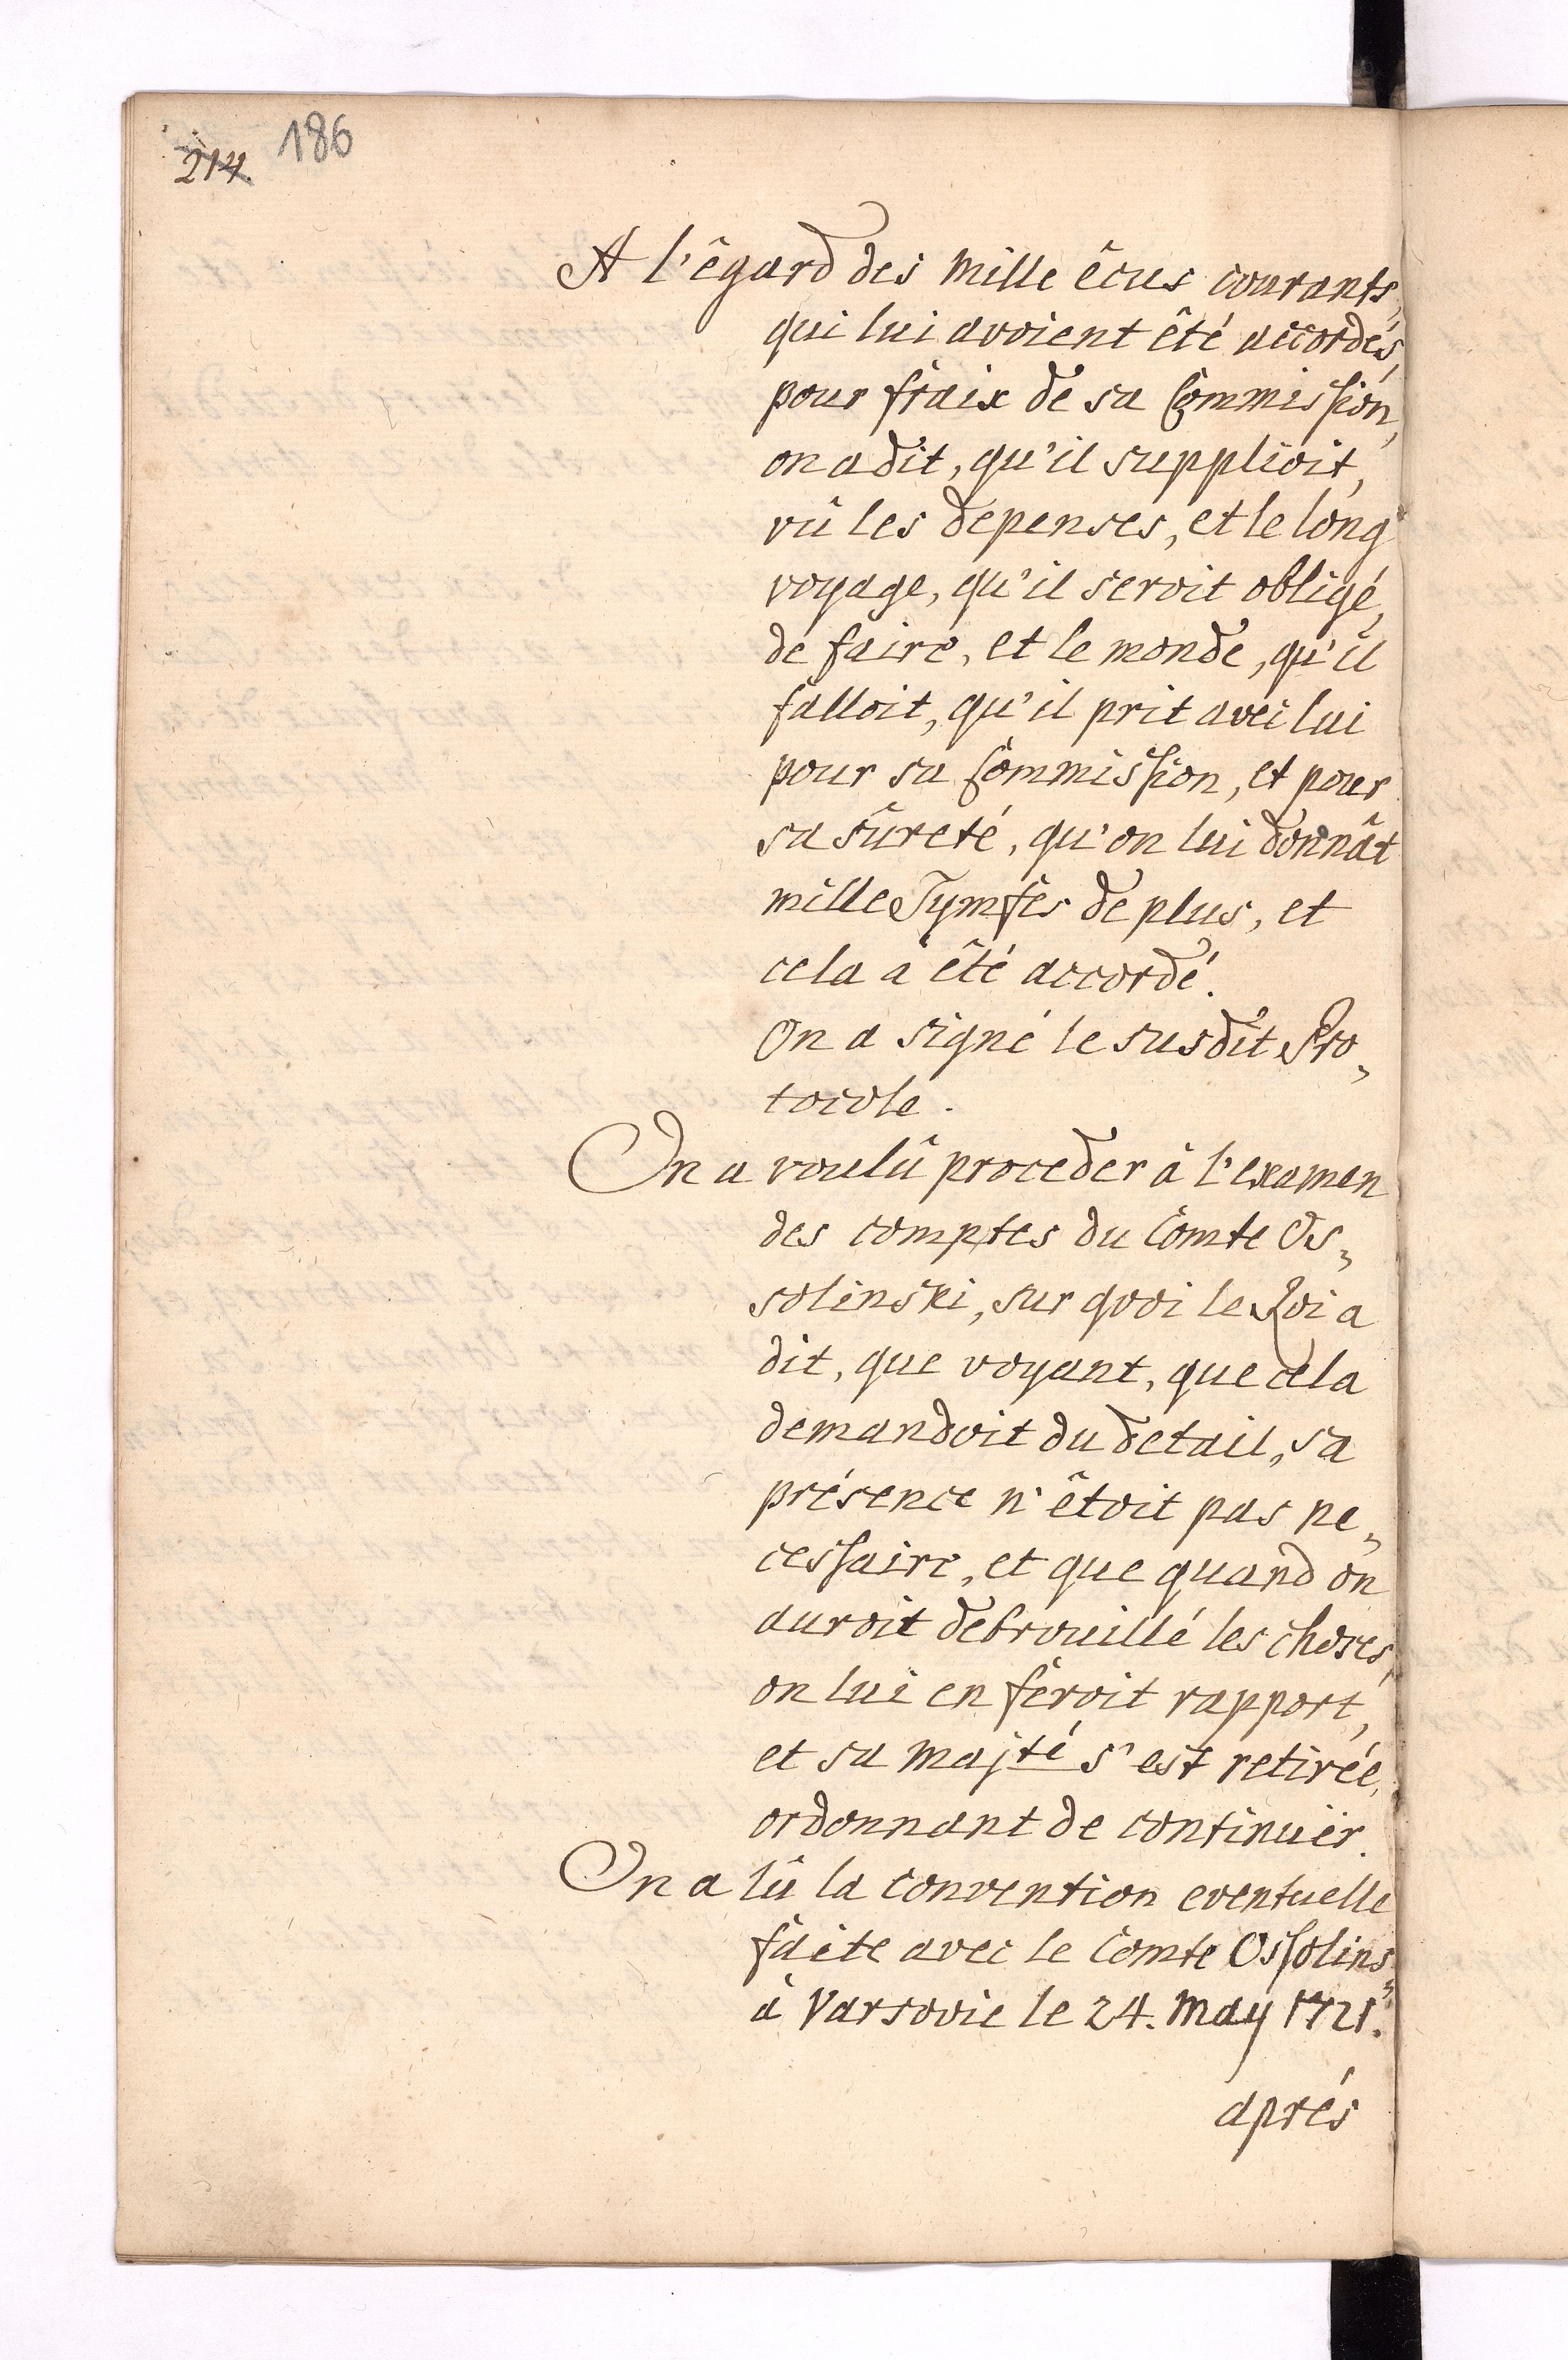 214. 186
A l'êgard des mille êcus courants,
qui lui avoient êté accordés,
pour fraix de sa Commission,
on a dit, qu'il supplioit,
vû les depenses, et le long
voyage, qu'il seroit obligé,
de faire, et le monde, qu'il
falloit, qu'il prit avec lui
pour sa Commission, et pour
sa sûreté, qu'on lui donnât
mille Tymfes de plus, et
cela a êté accordé.
On a signé le susdit Pro„
tocole.
On a voulû proceder à l'examen
des comptes du Comte Os„
solinski, sur quoi le Roi a
dit, que voyant, que cela
demandoit du detail, sa
présence n'êtoit pas ne„
cessaire, et que quand on
auroit debrouillé les choses,
on lui en feroit rapport,
et sa Majté s'est retirée,
ordonnant de continuër.
On a lû la convention eventuelle
faite avec le Comte Ossolins„
à Varsovie le 24. May 1721.
aprés